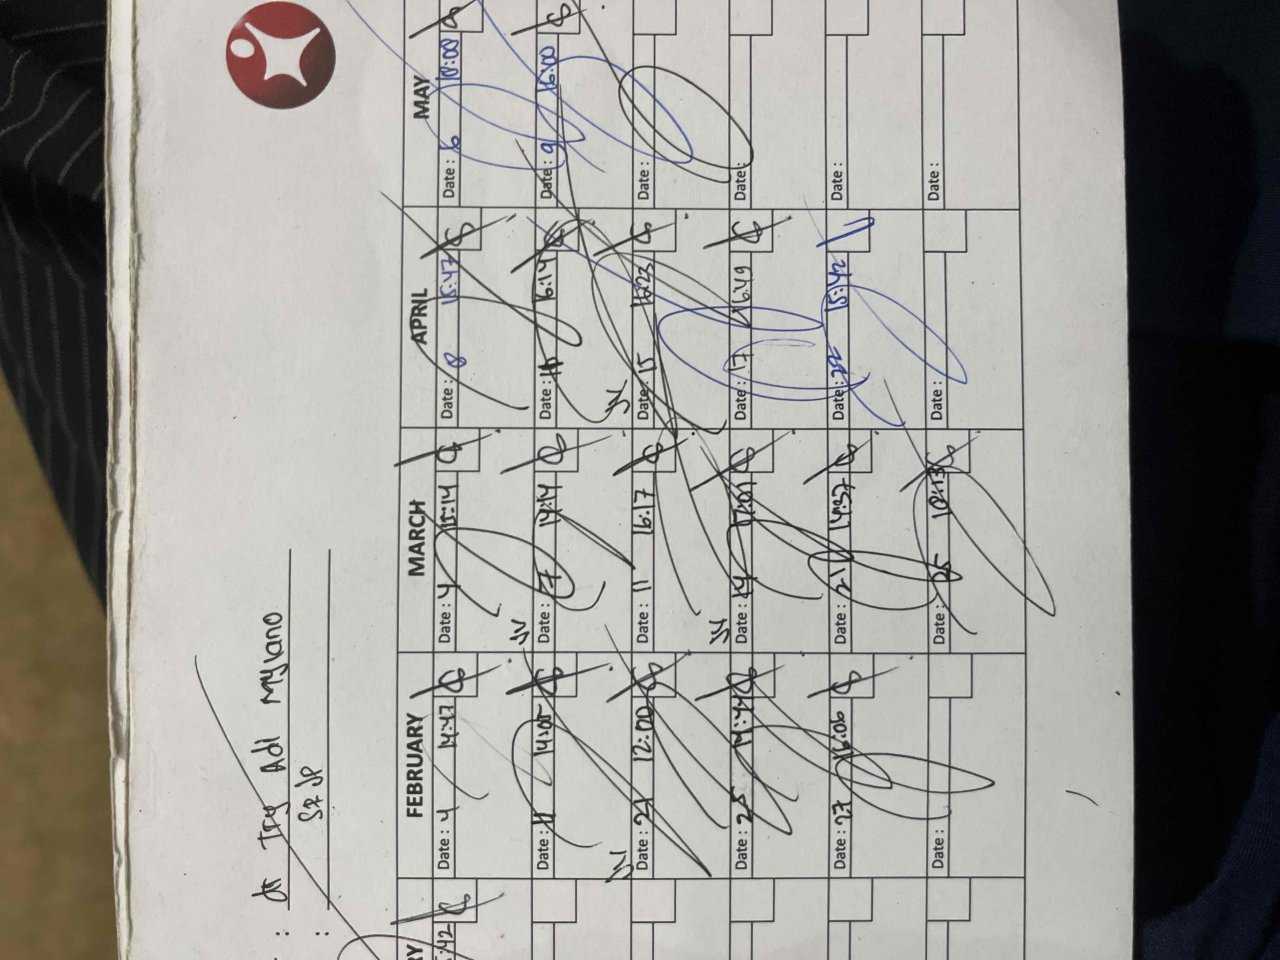 : dr Try Adl Mylano
:
FEBRUARY MARCH APRIL MAY
:42
Date : 4 14:47
Date : 4 15:14
Date : 8 15:47
Date : 6 10:00
Date : 11 14:05
Date : 7 14:14
Date : 16:14
Date : 9 16:00
Date : 21 12:00
Date : 11 16:17
Date : 15 16:23
Date :
Date : 25 14:44
Date : 14 17:01
Date : 17 16:49
Date :
Date : 27 16:06
Date : 21 14:37
Date : 22 15:42
Date :
Date :
Date : 25 18:13
Date :
Date :